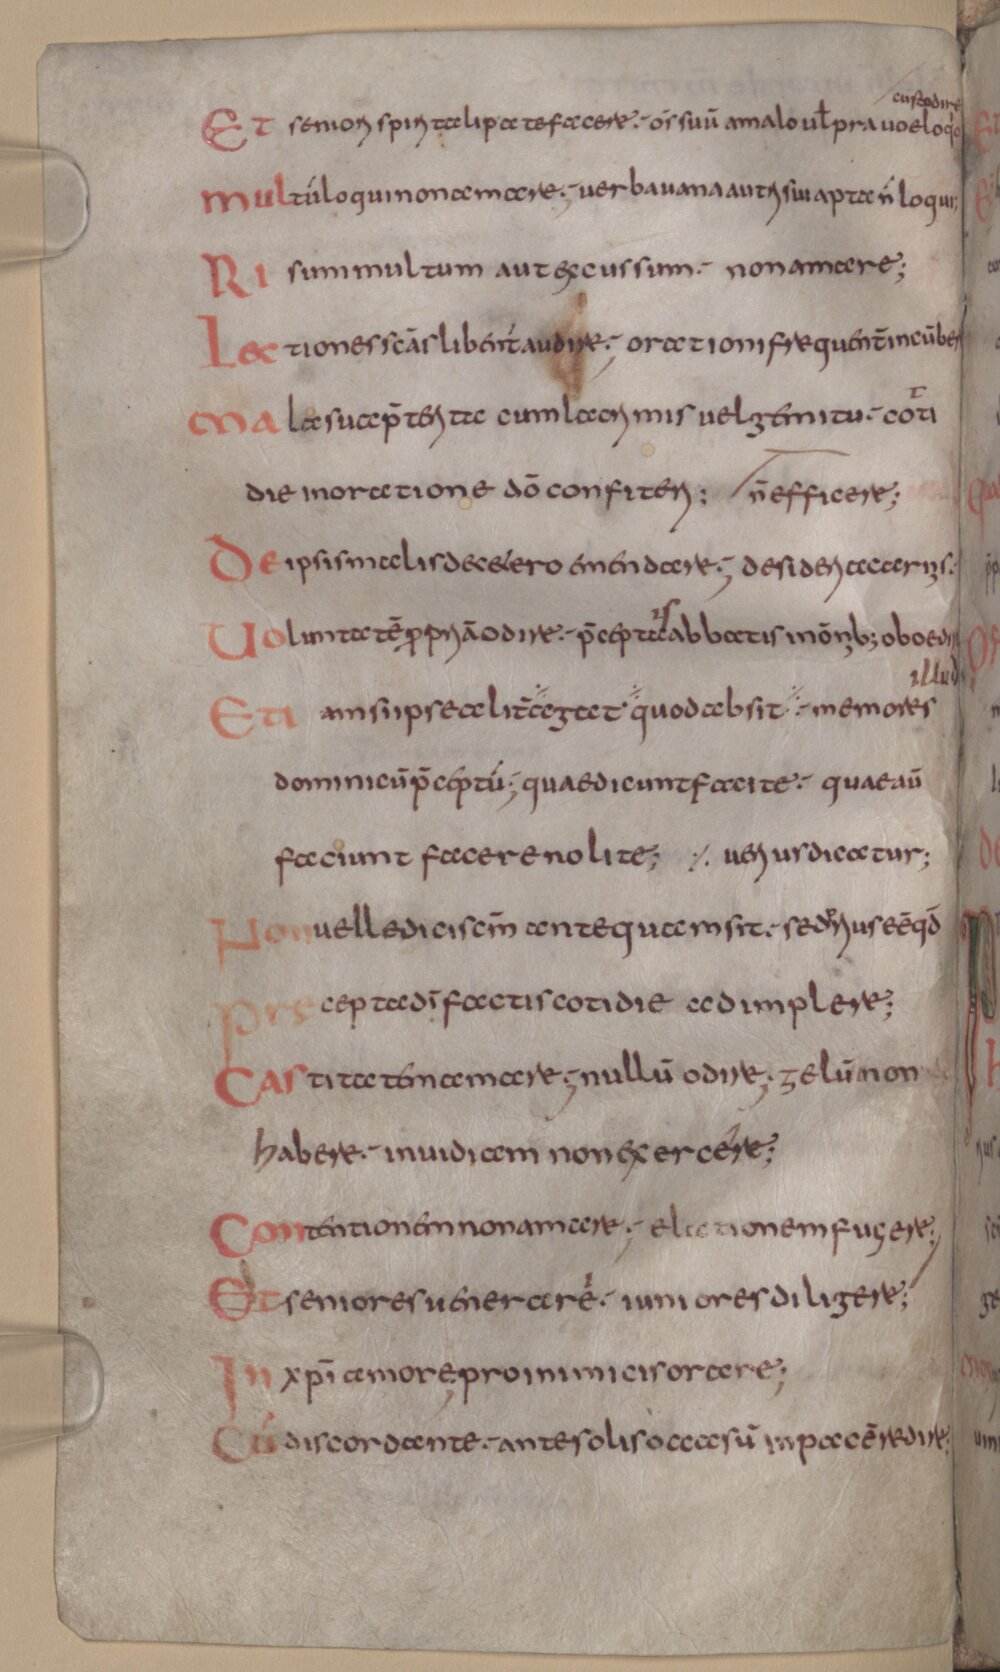 custodire
Et seniori spiritali patefacere. os suū a malo uƚ prauo eloq́o
multū loqui non amare; uerba uana aut risui apta ń loqui;
Risum multum aut excussum. non amare;
Lectiones scās libent́ audire; orationi frequent̄ incūbere
Mala sua p̄terita cum lacrimis uel gemitu. cottidie in oratione dō confiteri; n̄ efficere;
De ipsis malis de cetero emendare; desideria carnis.
Uoluntatē ꝓpriā odire. p̄ceptis abbatis in ōnib; oboedire
illud
Etiam si ipse alit̄ agat quod absit memores
dominicū p̄ceptū; quae dicunt facite. quae aū
faciunt facere nolite; uerius dicatur;
Non uelle dici scm̄ antequam sit. sed prius eē qđ
Precepta dī factis cotidie adimplere;
Castitatem amare; nullū odire; zelū non
habere. inuidiam non exercere;
Contentionem non amare; elationem fugere;
Et seniores uenerare. iuniores diligere;
In xpī amore pro inimicis orare;
Cū discordante. ante solis occasū in pacē redire;